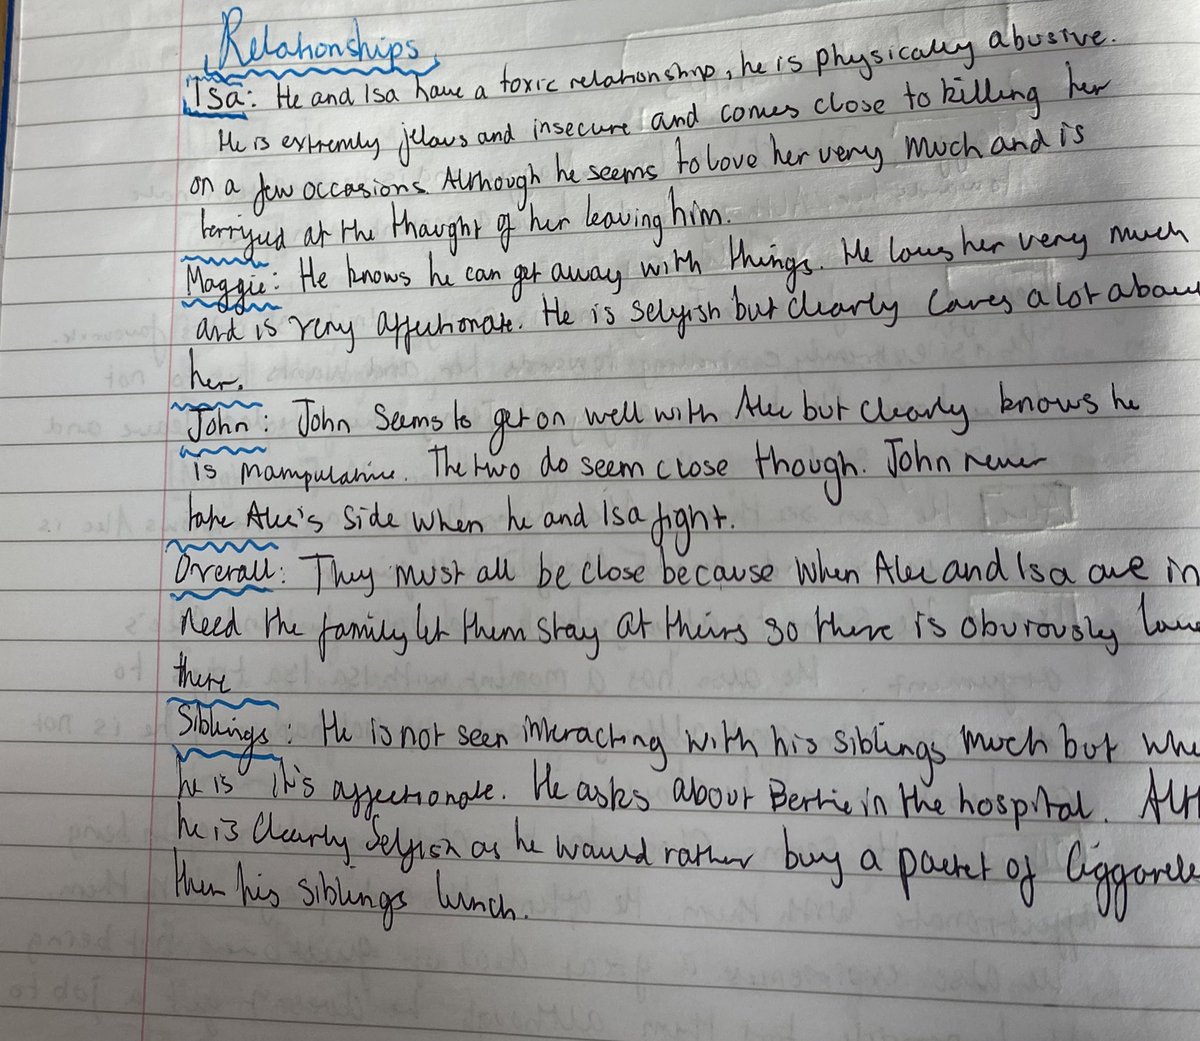 Relationships
Isa: He and Isa have a toxic relationship, he is physically abusive.
He is extremly jelous and insecure and comes close to killing her
on a few occasions. Although he seems to love her very much and is
terrified at the thought of her leaving him.
Maggie: He knows he can get away with things. He loves her very much
and is very affectionate. He is selfish but clearly cares a lot about
her.
John: John seems to get on well with Alec but clearly knows he
is manipulative. The two do seem close though. John never
take Alec's side when he and Isa fight.
Overall: They must all be close because when Alec and Isa are in
need the family let them stay at theirs so there is obviously love
there
Siblings: He is not seen interacting with his siblings much but whe
he is it's affectionate. He asks about Bertie in the hospital. Alth
he is clearly selfish as he would rather buy a packet of Ciggarete
then his siblings lunch.